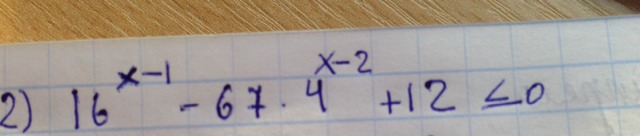 2) 16^{x-1} - 67 · 4^{x-2} + 12 ≤ 0